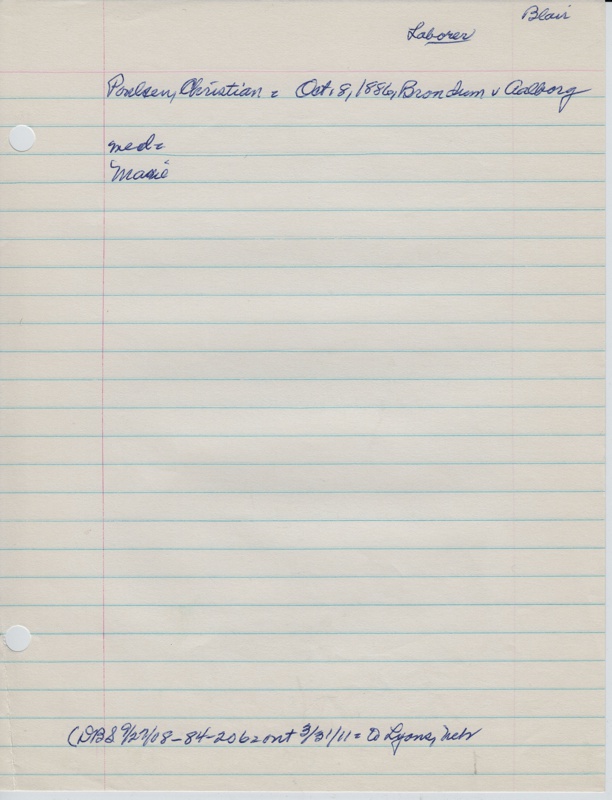 Blair
Laborer
Poulsen, Christian = Oct. 8, 1886, Brondum v Aalborg
med =
Marie
(DBS 9/27/08-84-206 = ont 3/31/11 = to Lyons, Neb